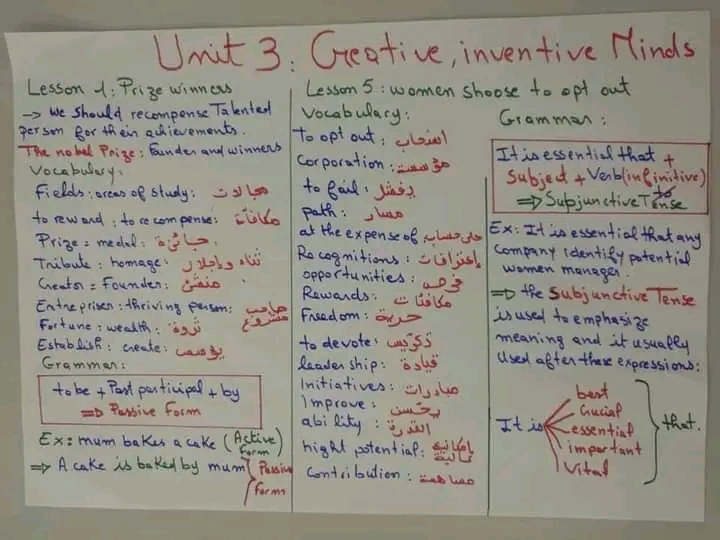 Unit 3: Creative, inventive Minds
Lesson 1: Prize winners
→ We should recompense Talented
person for their achievements.
The nobel Prize: founder and winners
Vocabulary:
Fields: areas of study: مجالات
to reward: to recompense: مكافأة
Prize = medal: جائزة
Tribute: homage: ثناء وإجلال
Creator = Founder: منشئ
Entrepriser: thriving person: صاحب مشروع
Fortune: wealth: ثروة
Establish: create: يؤسس
Grammar:
to be + Past participal + by
⇒ Passive Form
Ex: mum bakes a cake (Active Form)
⇒ A cake is baked by mum (Passive Form)
Lesson 5: women shoose to opt out
Vocabulary:
To opt out: انسحاب
Corporation: مؤسسة
to fail: يفشل
path: مسار
at the expense of: على حساب
Recognitions: إعترافات
opportunities: فرصة
Rewards: مكافئات
Freedom: حرية
to devote: تكريس
leadership: قيادة
Initiatives: مبادرات
Improve: يحسن
ability: القدرة
hight potential: إمكانية عالية
Contribution: مساهمة
Grammar:
It is essential that +
Subject + Verb (infinitive)
to
⇒ Subjunctive Tense
Ex: It is essential that any
company identify potential
women manager.
⇒ the Subjunctive Tense
is used to emphasize
meaning and it usually
used after these expressions:
best
Crucial
It is essential that.
important
Vital